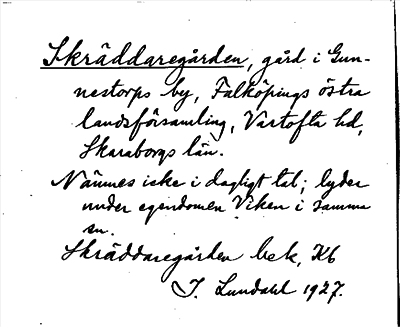 Skräddaregården, gård i Gun-
nestorps by, Falköpings östra
landsförsamling, Vartofta hd,
Skaraborgs län.
Nämnes icke i dagligt tal; lyder
under egendomen Viken i samma
sn.
Skräddaregården bek, Kb
I. Lundahl 1927.